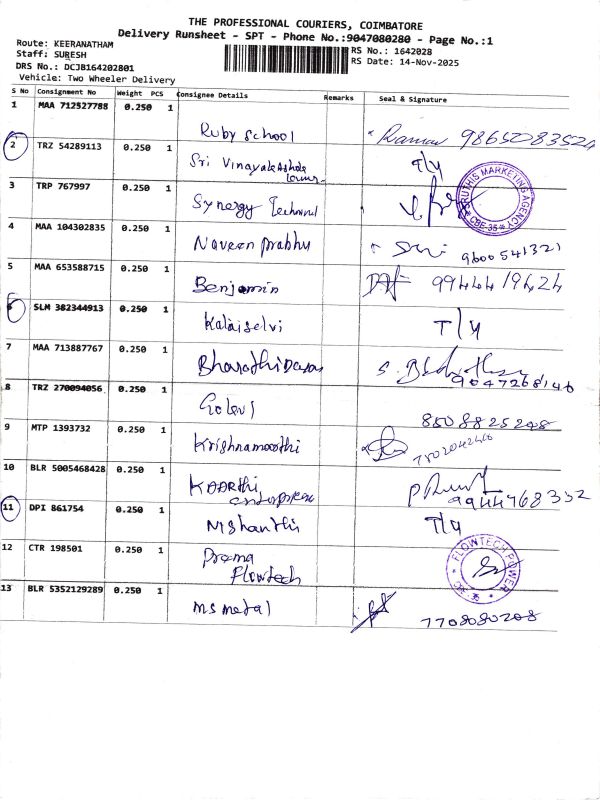 THE PROFESSIONAL COURIERS, COIMBATORE
Delivery Runsheet - SPT - Phone No.:9047080280 - Page No.:1
Route: KEERANATHAM
Staff: SURESH
DRS No.: DCJB164202801
Vehicle: Two Wheeler Delivery
RS No.: 1642028
RS Date: 14-Nov-2025
S No Consignment No Weight PCS Consignee Details Remarks Seal & Signature
1 MAA 712527788 0.250 1 Ruby School 9865083524
2 TRZ 54289113 0.250 1 Sri Vinayaka T/4
3 TRP 767997 0.250 1 Synergy SRUTHIS MARKETING AGENCY CBE-35
4 MAA 104302835 0.250 1 Naveen prabhu 9600541321
5 MAA 653588715 0.250 1 Benjamin 9944419424
6 SLM 382344913 0.250 1 Kalaiselvi T/4
7 MAA 713887767 0.250 1 Bharathidasan 9047268146
8 TRZ 270094056 0.250 1 8508825248
9 MTP 1393732 0.250 1 Krishnamoorthi
10 BLR 5005468428 0.250 1 KAARthi enterprises 9944768332
11 DPI 861754 0.250 1 Nishanthi T/4
12 CTR 198501 0.250 1 Prema Flowtech FLOWTECH POWER
13 BLR 5352129289 0.250 1 ms metal 7708080208